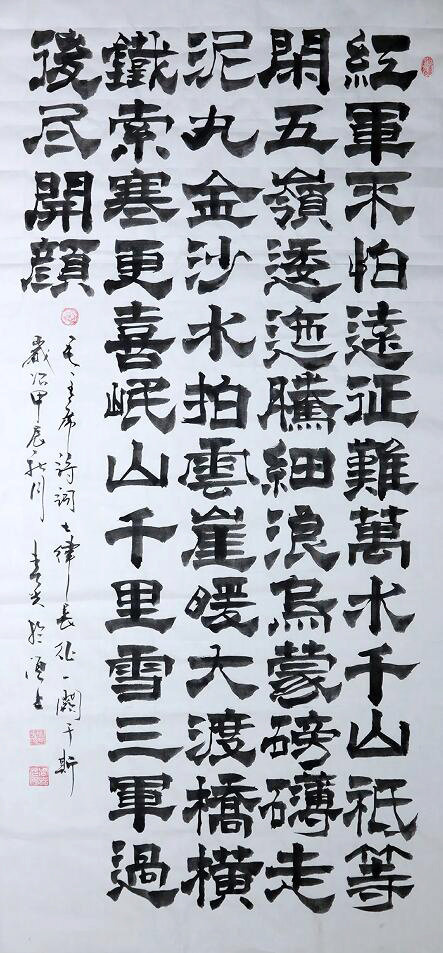 紅軍不怕遠征難萬水千山祇等
閑五嶺逶迤騰細浪烏蒙磅礴走
泥丸金沙水拍雲崖暖大渡橋橫
鐵索寒更喜岷山千里雪三軍過
後尽開顔
毛主席詩詞七律長征一闋于斯
歲次甲辰秋月